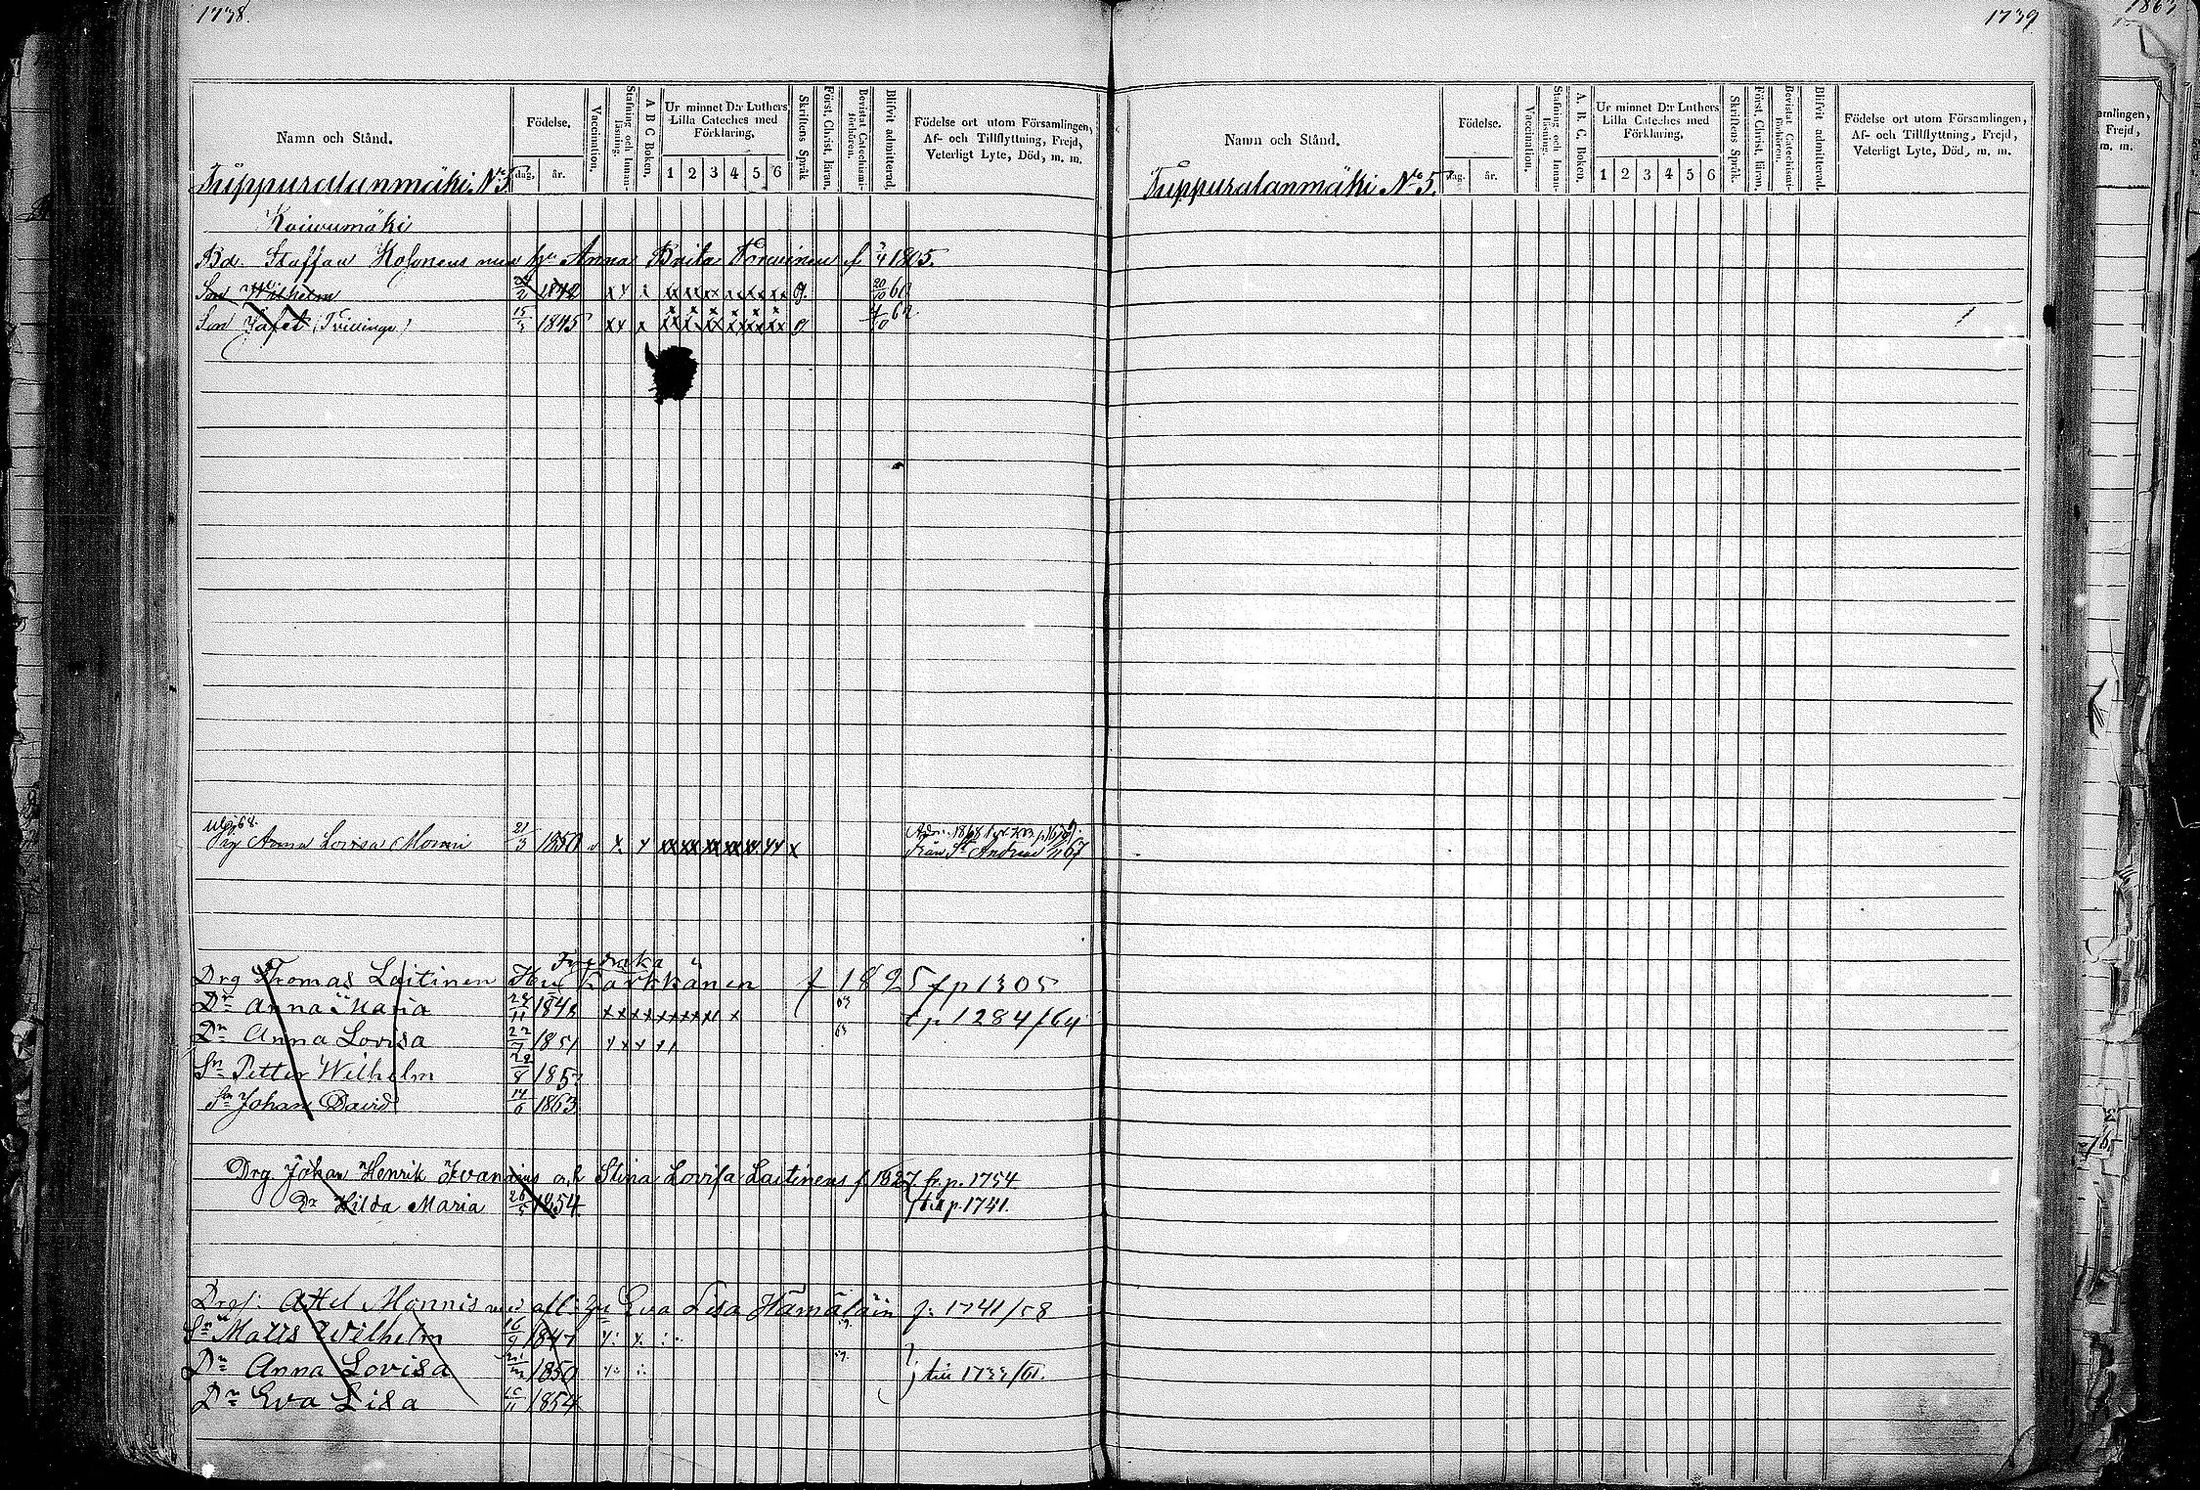 1738.
Namn och Stånd.
Födelse.
dag, år.
Vaccination.
Stafning och Innanläsning.
A B C Boken.
Ur minnet D:r Luthers Lilla Cateches med Förklaring.
1 2 3 4 5 6
Skriftens Språk
Först. Christ. läran.
Bevistat Catechismiförhören.
Blifvit admitterad.
Födelse ort utom Församlingen, Af- och Tillflyttning, Frejd, Veterligt Lyte, Död, m. m.
Tuppuralanmäki No 5.
Koivumäki
Bd. Staffan Kosonens hu Anna Brita f 1805.
Son Wilhelm 1842 xx x xx xx xx xx xx xx g. 20/10 60
Son Jafet (Tvillinge) 15/3 1845 xx x g
Anna Lovisa Monni 21/3 1850 x x xx xx xx xx xx xx x
Från St Andree 67
Fredrika
Drg Thomas Laitinen Hu Karkkänen f 1825 f p 1305
Dr Anna Maria 11 1848 63 t p 1284/64
Dr Anna Lovisa 22/7 1851 63
Sn Petter Wilhelm 8 185
Sn Johan David 14/6 1863
Drg Johan Henrik Stina Lovisa Laitinens f 1827 fr. p. 1754
Dr Hilda Maria 26/5 1854 till p. 1741.
Axel Monnis Eva Lisa Hämäläin f: 1741/58
Sn Matts Wilhelm 16/9 1847
Dr Anna Lovisa 1850 till
Dr Eva Lisa 11 1854
1739
Namn och Stånd.
Födelse.
dag. år.
Vaccination.
Stafning och Innanläsning.
A. B. C. Boken.
Ur minnet D:r Luthers Lilla Cateches med Förklaring.
1 2 3 4 5 6
Skriftens Språk.
Först. Christ. läran.
Bevistat Catechismiförhören.
Blifvit admitterad.
Födelse ort utom Församlingen, Af- och Tillflyttning, Frejd, Veterligt Lyte, Död, m. m.
Tuppuralanmäki No 5.
1863
Frejd,
m. m.